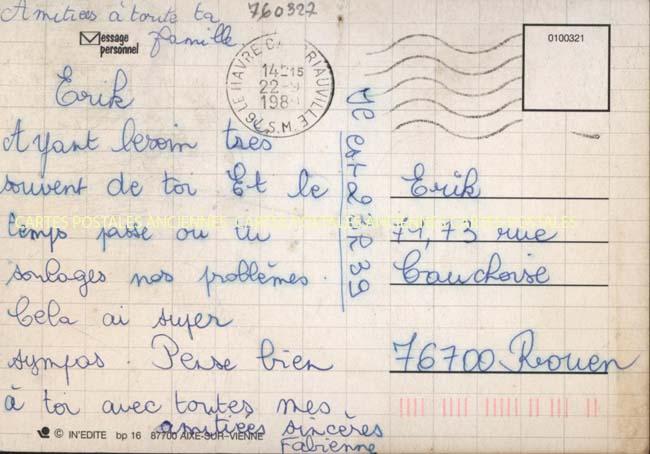 Amitiées à toute ta
famille
760327
Message
personnel
0100321
LE HAVRE CAUCRIAUVILLE
14H15
22-9
198
S.M.
Erik
Ayant besoin très
souvent de toi Et le
temps passe ou tu
soulages nos problèmes.
Cela ai super
sympas. Pense bien
à toi avec toutes mes
amitiées sincères
Fabienne
Erik
71,73 rue
Cauchoise
76700 Rouen
CARTES POSTALES ANCIENNES
© IN'EDITE bp 16 87700 AIXE-SUR-VIENNE